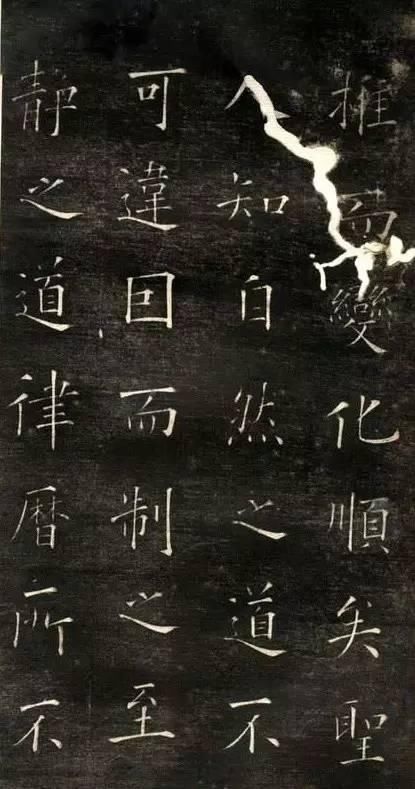 推而變化順矣聖
人知自然之道不
可違囙而制之至
静之道律曆所不